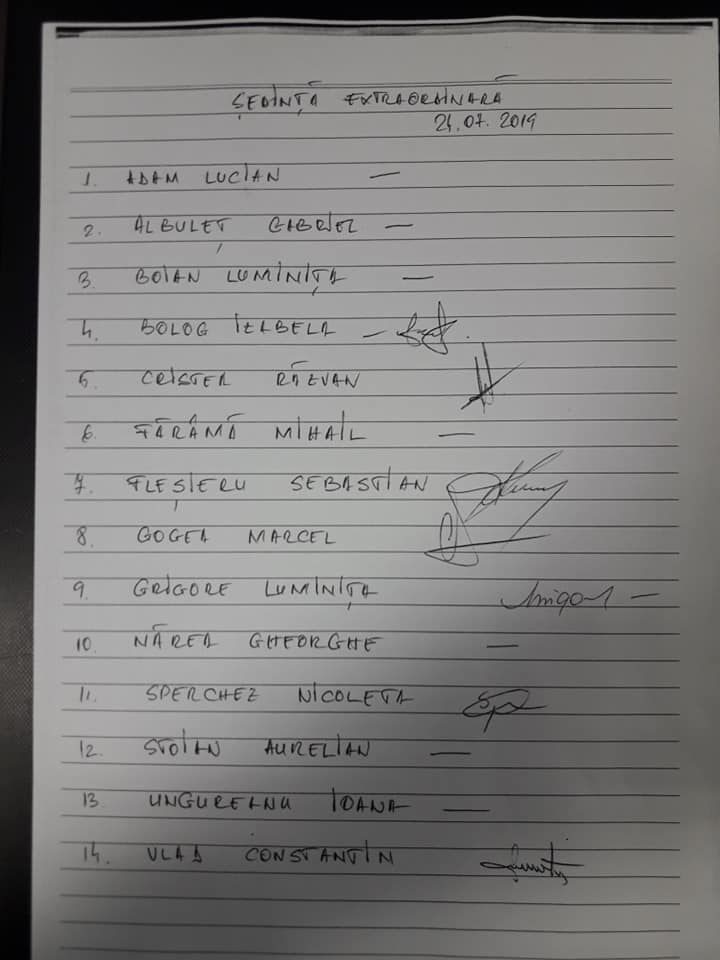 ȘEDINȚĂ EXTRAORDINARĂ
24.07.2019
1. ADAM LUCIAN —
2. ALBULEȚ GABRIEL —
3. BOIAN LUMINIȚA —
4. BOLOG IZABELA —
5. CRISTER RĂZVAN
6. FĂRÂMĂ MIHAIL —
7. FLEȘIERU SEBASTIAN
8. GOGEA MARCEL
9. GRIGORE LUMINIȚA —
10. NĂREA GHEORGHE —
11. SPERCHEZ NICOLETA
12. STOIAN AURELIAN —
13 UNGUREANU IOANA —
14. VLAD CONSTANTIN